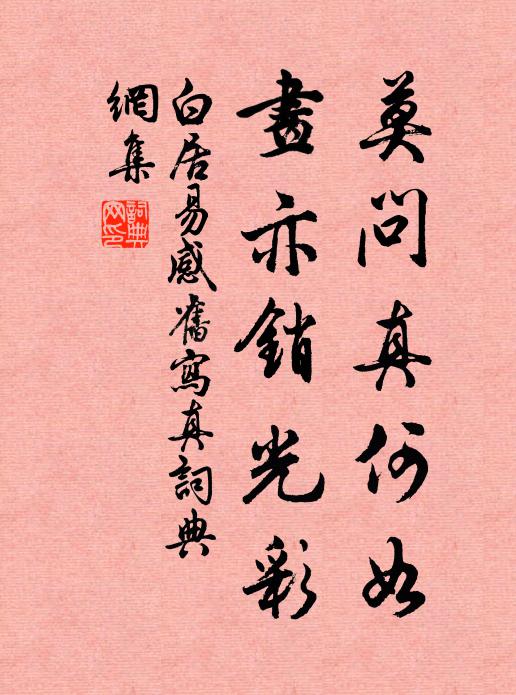 莫問真何如
畫亦銷光彩
白居易感舊寫真詞典
網集
詞典網印